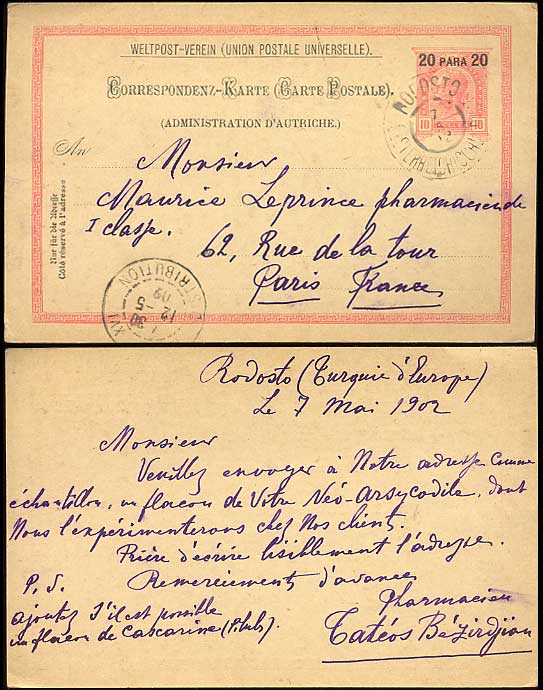 WELTPOST-VEREIN (UNION POSTALE UNIVERSELLE).
20 PARA 20
CORRESPONDENZ-KARTE (CARTE POSTALE).
(ADMINISTRATION D'AUTRICHE.)
RODOSTO
10 10
An
Nur für die Adresse
Côté réservé à l'adresse
Monsieur
Maurice Leprince pharmacien de
I classe.
62, Rue de la tour
Paris France
DISTRIBUTION
XVI
Rodosto (Turquie d'Europe)
Le 7 Mai 1902
Monsieur
Veuillez envoyer à Notre adresse comme
échantillon, un flacon de Votre Néo-Arsycodile, dont
Nous l'expérimenterons chez Nos clients.
Prière d'écrire lisiblement l'adresse.
Remerciements d'avance
P.S.
ajoutez s'il est possible
un flacon de Cascarine (Pilules).
Pharmacien
Tatéos Bézirdjian